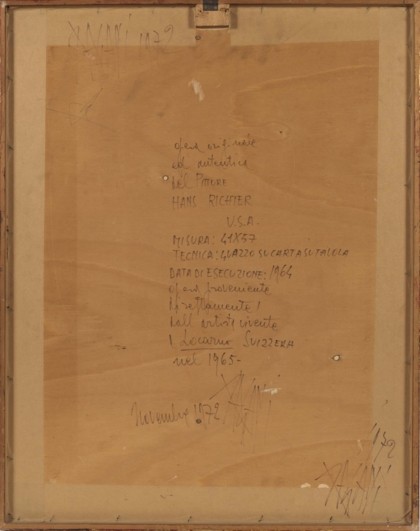 1972
opera originale
ed autentica
del Pittore
HANS RICHTER
U.S.A.
MISURA: 41X57
TECNICA: GUAZZO SU CARTA SU TAVOLA
DATA DI ESECUZIONE: 1964
opera proveniente
direttamente
dall artista vivente
Locarno SVIZZERA
nel 1965-
Novembre 1972